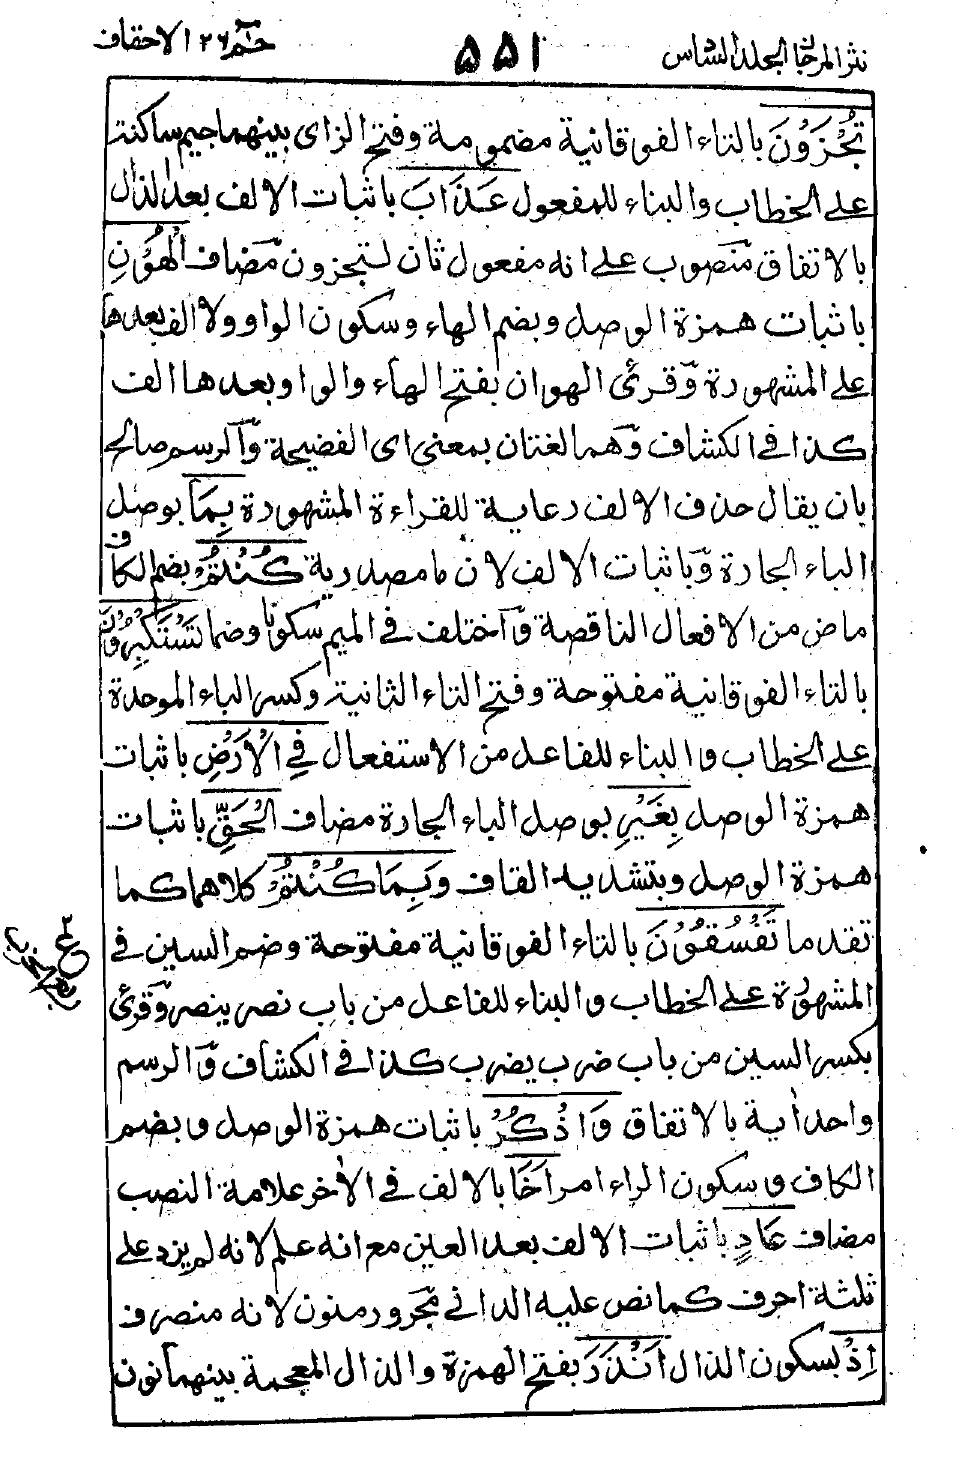 نثر المرجان المجلد السادس
۵۵۱
حٰم ۲۶ الاحقاف
تُجْزَوْنَ بالتاء الفوقانية مضمومة وفتح الزاى بينهما جيم ساكنة
على الخطاب والبناء للمفعول عَذَابَ باثبات الالف بعد الذال
بالاتفاق منصوب على انه مفعول ثان لتجزون مضاف الْهُوْنِ
باثبات همزة الوصل وبضم الهاء وسكون الواو ولا الف بعدها
على المشهورة وقرئ الهوان بفتح الهاء والواو بعدها الف
كذا فى الكشاف وهما لغتان بمعنى اى الفضيحة والرسم صالح
بان يقال حذف الالف رعاية للقراءة المشهورة بِمَا بوصل
الباء الجارة وباثبات الالف لان ما مصدرية كُنْتُمْ بضم الكاف
ماض من الافعال الناقصة واختلف فى الميم سكونا وضما تَسْتَكْبِرُوْنَ
بالتاء الفوقانية مفتوحة وفتح التاء الثانية وكسر الباء الموحدة
على الخطاب والبناء للفاعل من الاستفعال فِي الْاَرْضِ باثبات
همزة الوصل بِغَيْرِ بوصل الباء الجارة مضاف الْحَقِّ باثبات
همزة الوصل وبتشديد القاف وَبِمَا كُنْتُمْ كلاهما كما
تقدما تَفْسُقُوْنَ بالتاء الفوقانية مفتوحة وضم السين فى
المشهورة على الخطاب والبناء للفاعل من باب نصر ينصر وقرئ
بكسر السين من باب ضرب يضرب كذا فى الكشاف والرسم
واحد اٰية بالاتفاق وَاذْكُرْ باثبات همزة الوصل وبضم
الكاف وسكون الراء امر اَخَا بالالف فى الاٰخر علامة النصب
مضاف عَادٍ باثبات الالف بعد العين مع انه علم لانه لم يزد على
ثلثة احرف كما نص عليه الدانى مجرور منون لانه منصرف
اِذْ بسكون الذال اَنْذَرَ بفتح الهمزة والذال المعجمة بينهما نون
ع